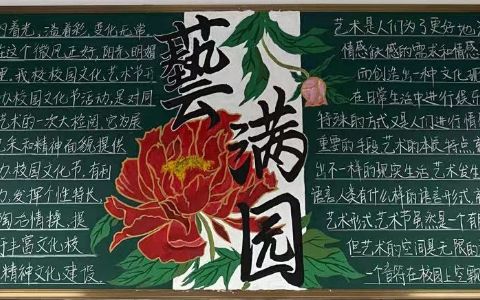 闪着光，溢着彩，变化无常，
在这个微风正好，阳光明媚
里，我校校园文化艺术节开
办校园文化节活动，是对同
艺术的一次大检阅，它为展
和精神面貌提供
办校园文化节，有利
力，发挥个性特长，
陶冶情操，提
丰富文化校
精神文化建设。
藝
满
园
艺术是人们为了更好地
情感欣感的需求和情感
而创造出一种文化
在日常生活中进行娱乐
特殊的方式又是人们进行情
重要的手段艺术的本质特点
出不一样的现实生活艺术发生
语言人类有什么样的语言形式
艺术形式，艺术节虽然是一个有
但艺术的空间是无限的
一个音符在校园上空飘